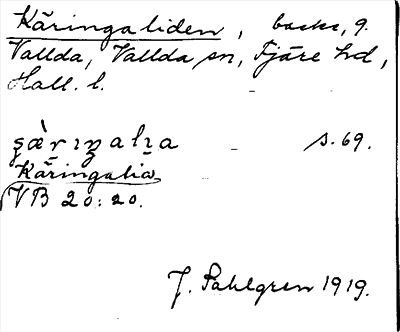 Käringaliden, backe, g.
Vallda, Vallda sn, Fjäre hd,
Hall. l.
s. 69.
Käringalia
VB 20:20.
J. Sahlgren 1919.